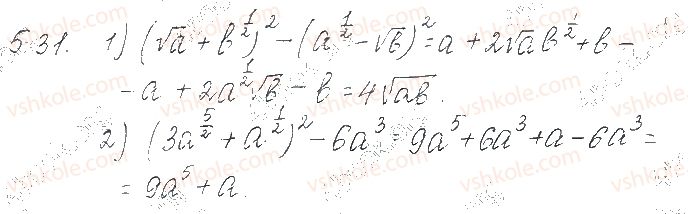 5.31. 1) (√a + b^{1/2})² − (a^{1/2} − √b)² = a + 2√a b^{1/2} + b −
− a + 2a^{1/2}√b − b = 4√ab.
2) (3a^{5/2} + a^{1/2})² − 6a³ = 9a⁵ + 6a³ + a − 6a³ =
= 9a⁵ + a.
vshkole.com